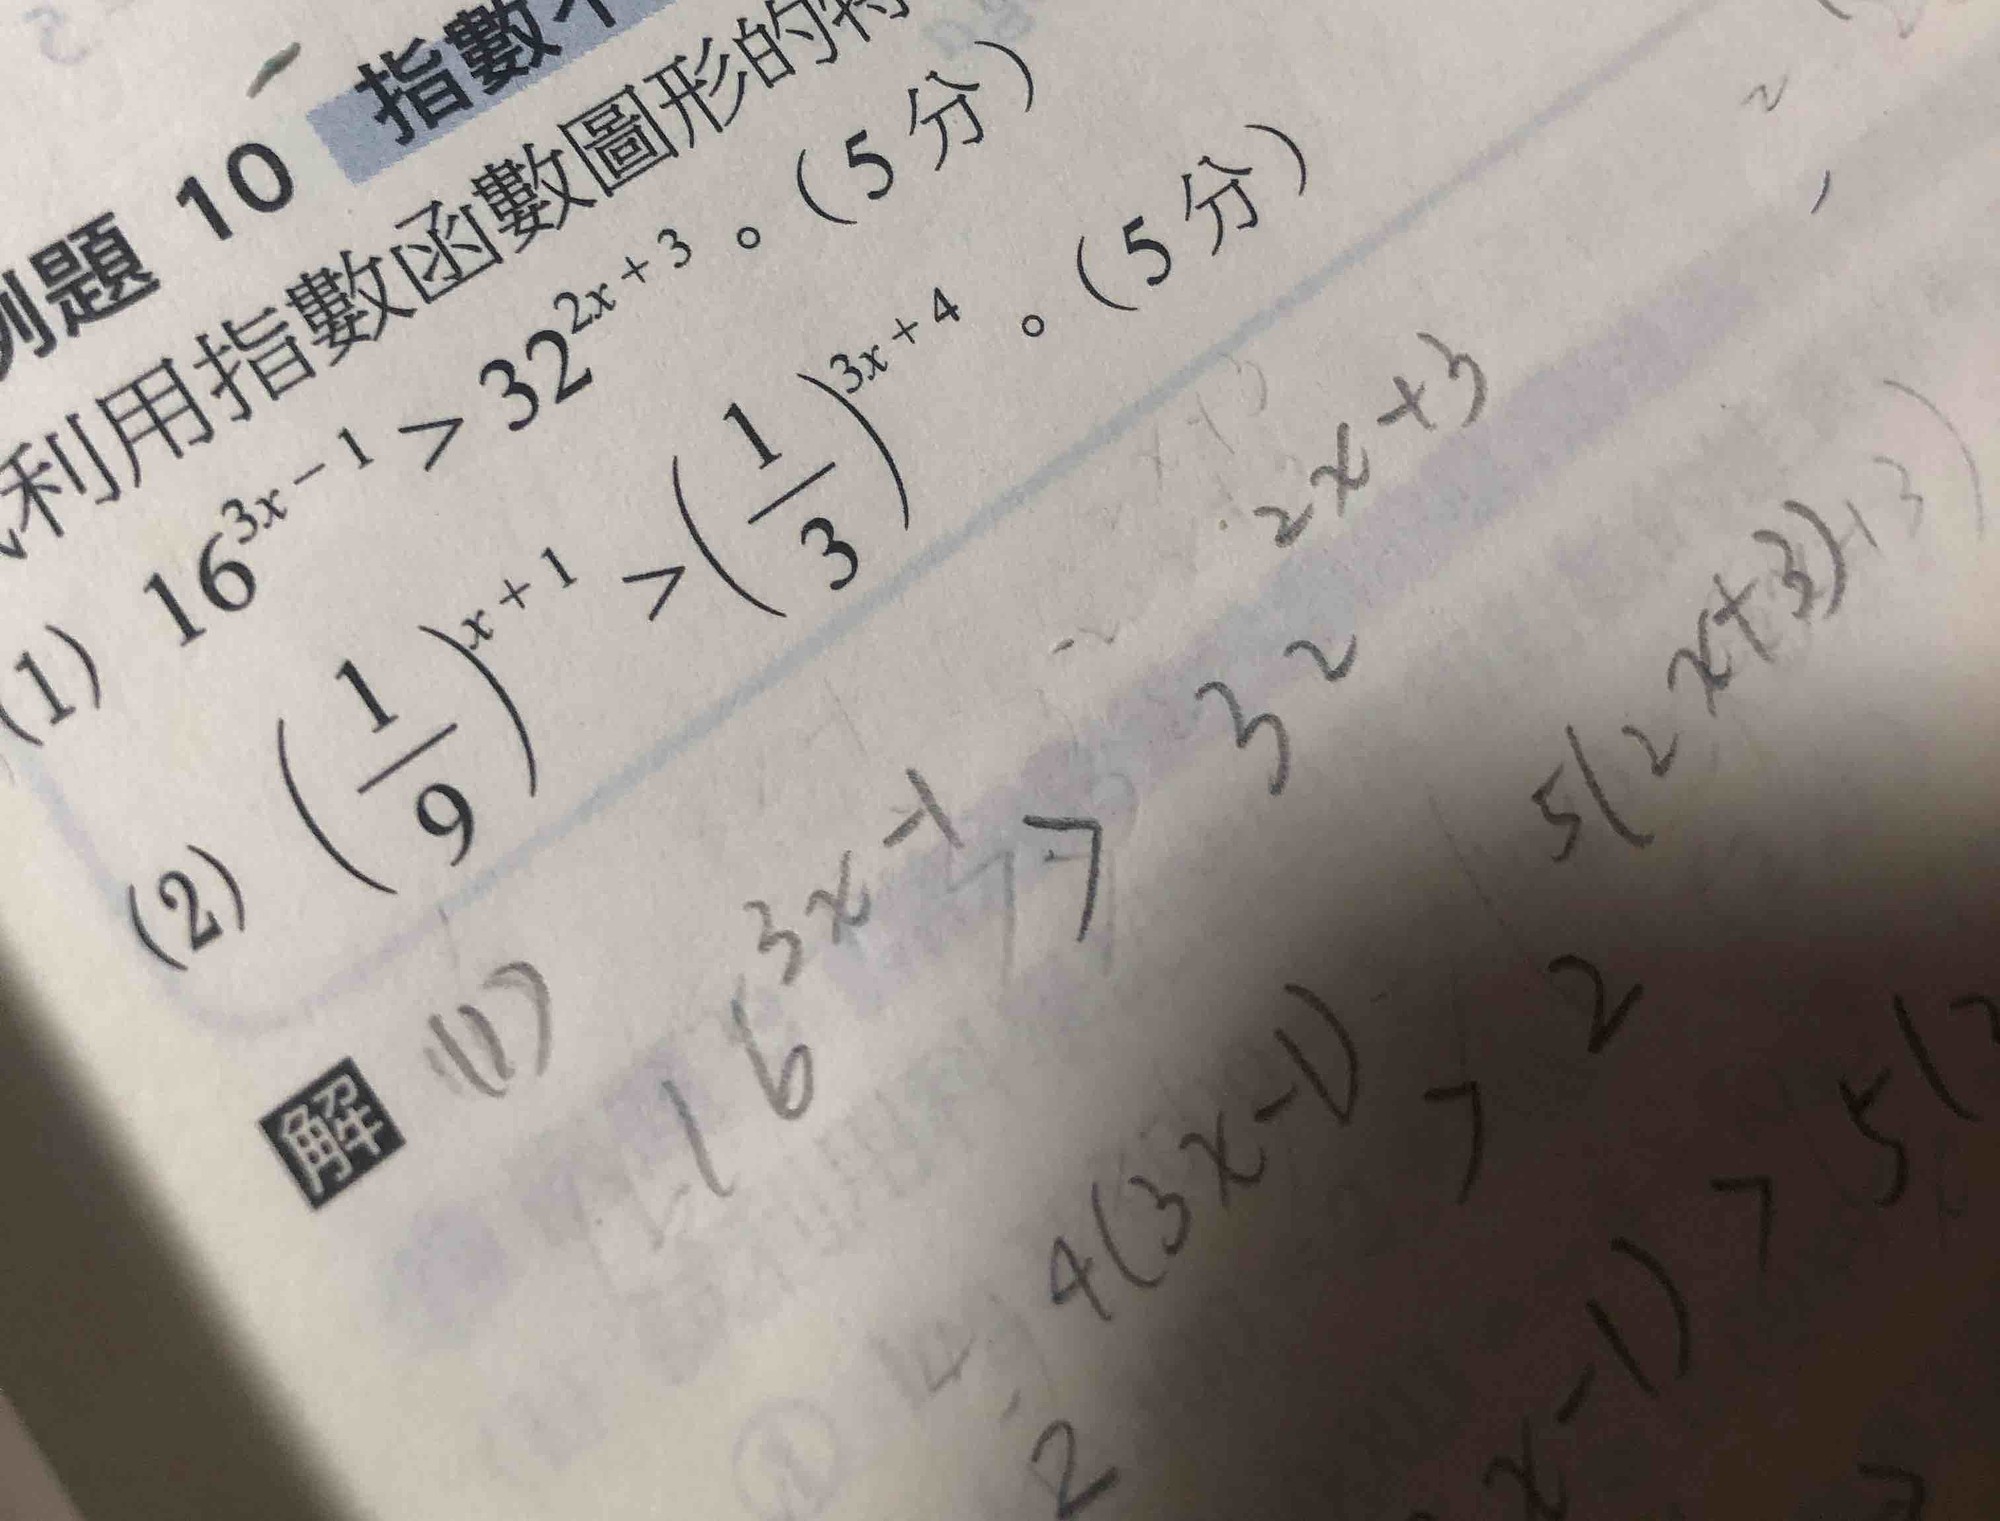 例題 10 指數不
利用指數函數圖形的特
(1) 16^{3x-1} > 32^{2x+3}。(5 分)
(2) (1/9)^{x+1} > (1/3)^{3x+4}。(5 分)
解 (1) 16^{3x-1} > 32^{2x+3}
2^{4(3x-1)} > 2^{5(2x+3)}
x-1) > 5(2